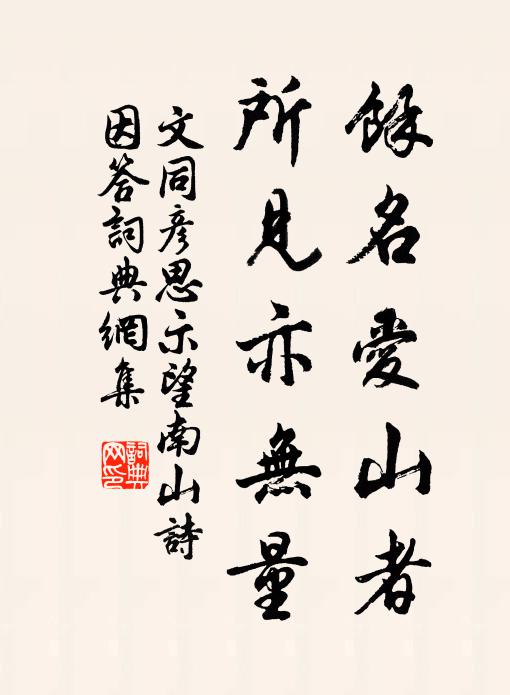 餘名愛山者
所見亦無量
文同彥思示望南山詩
因答詞典網集
詞典
网印